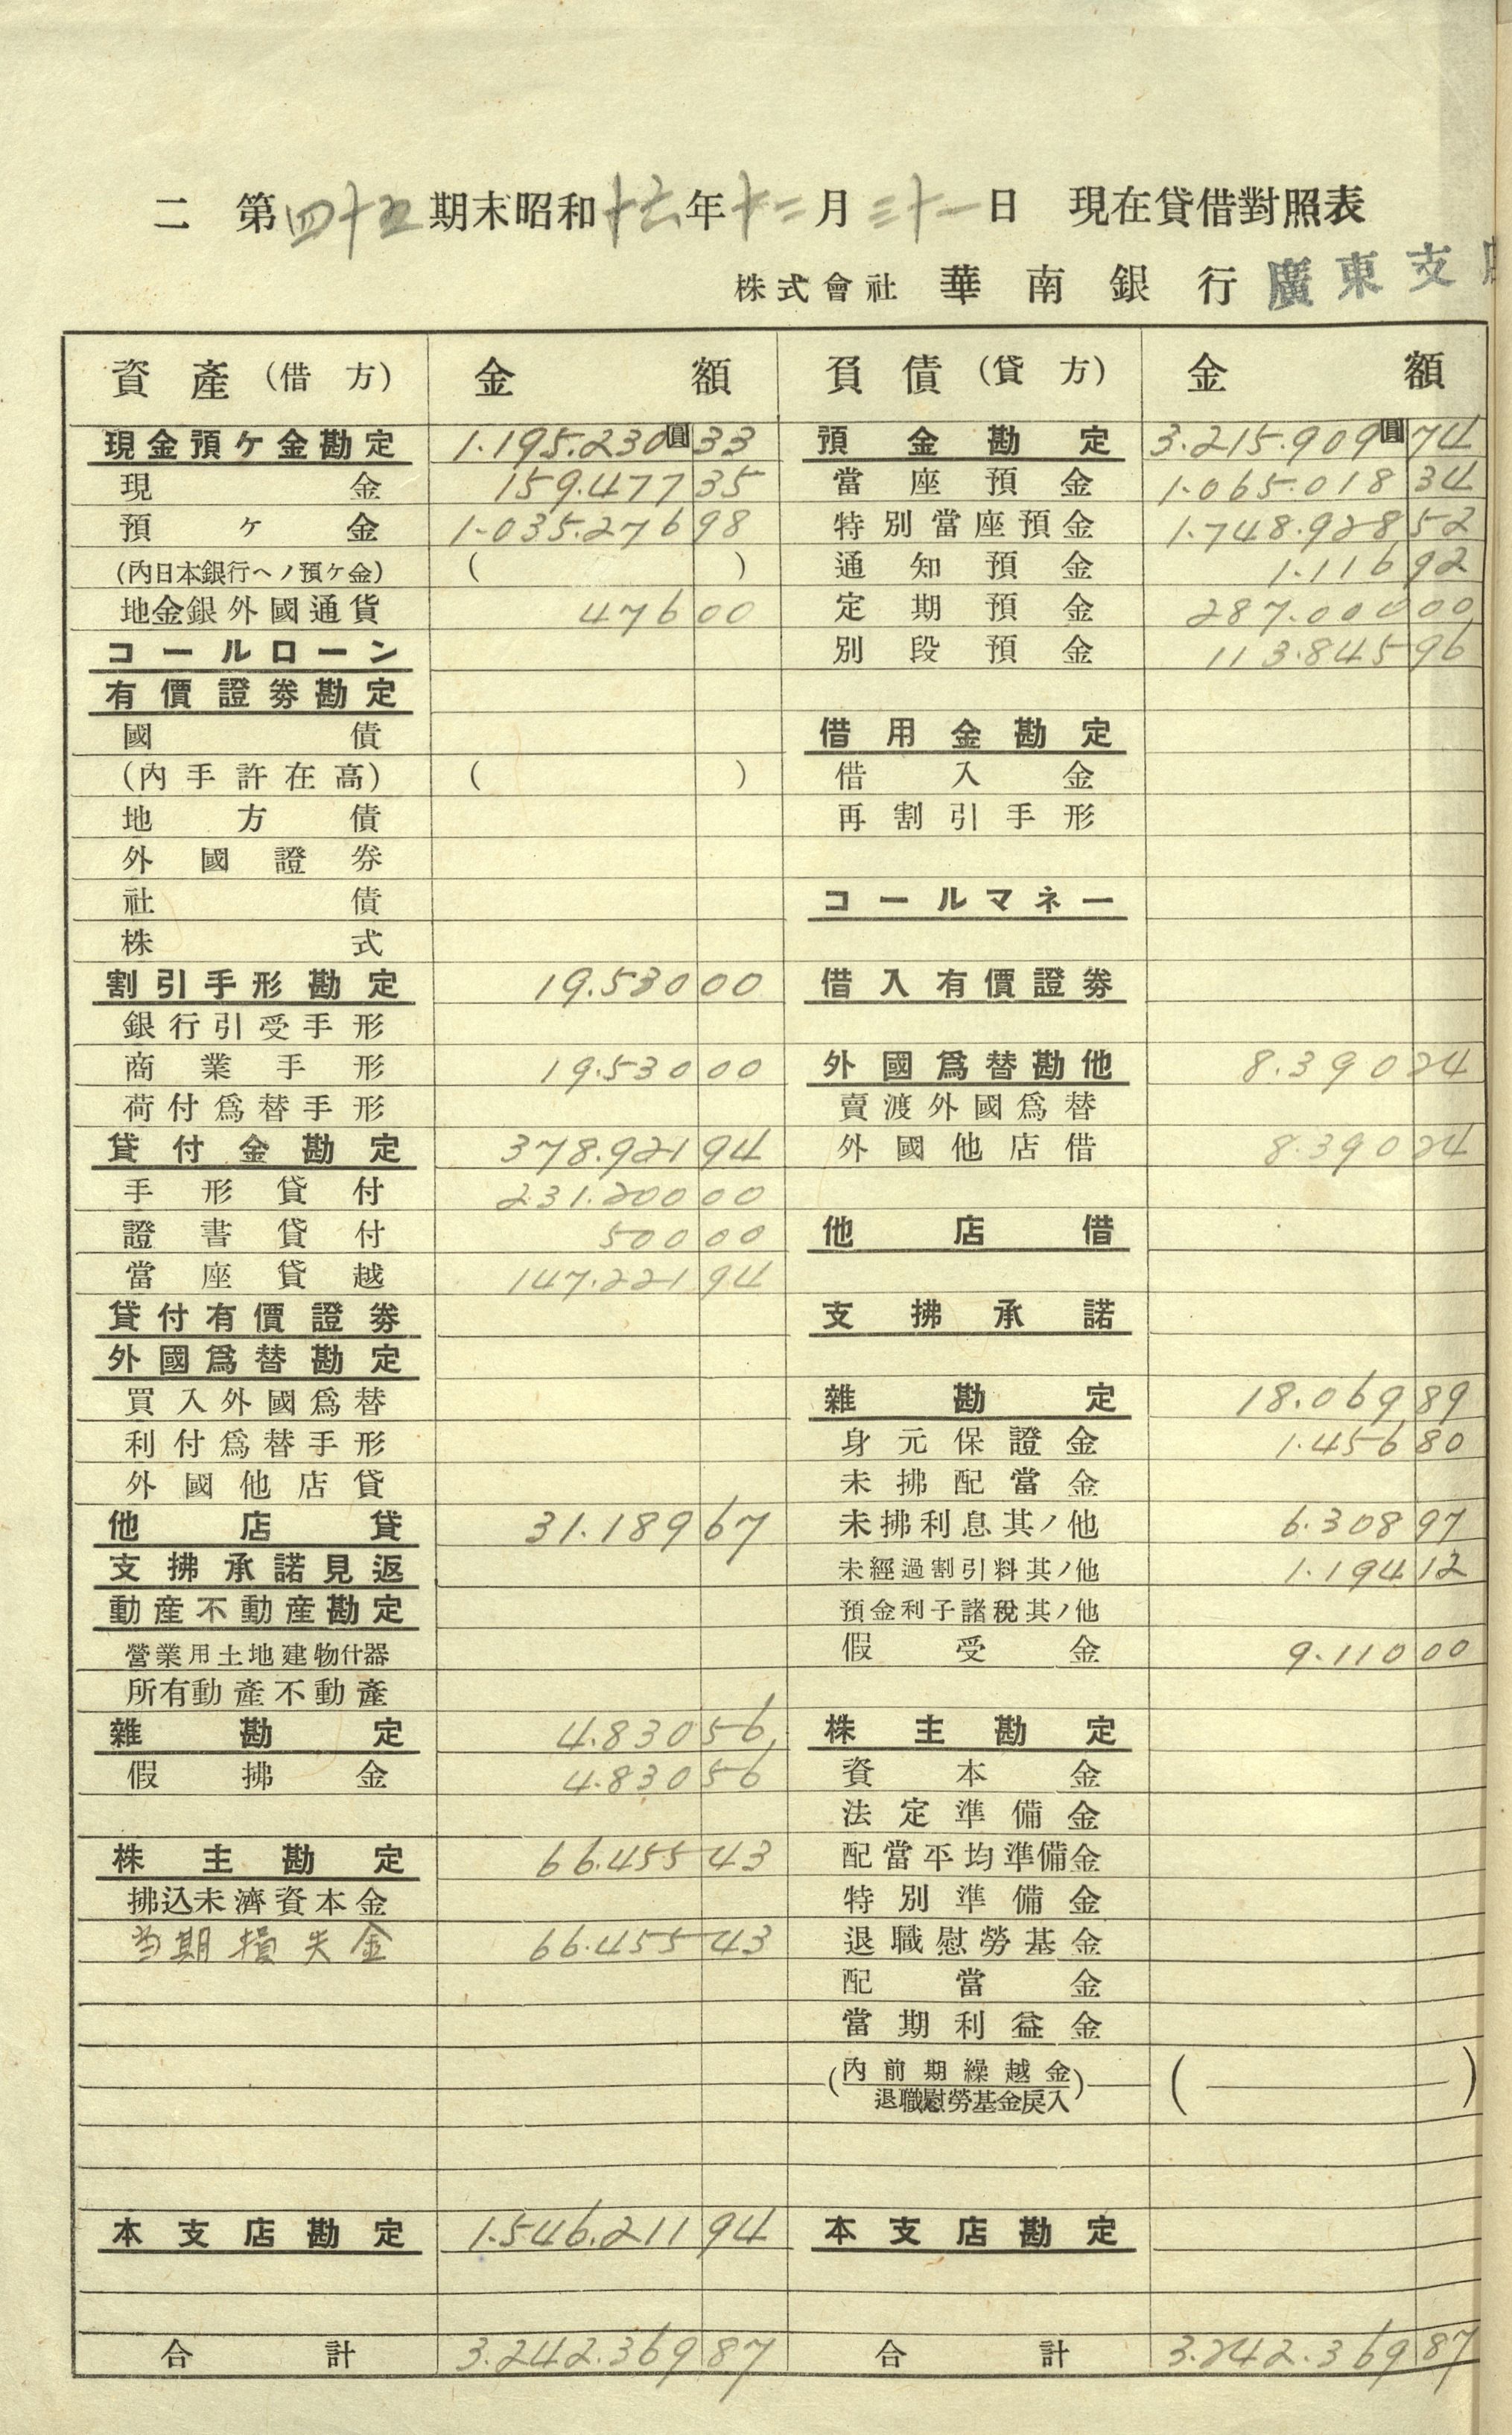 二 第四十五期末昭和十六年十二月三十一日 現在貸借對照表
株式會社 華南銀行 廣東支
資產(借方) 金額 負債(貸方) 金額
現金預ケ金勘定 1.195.230圓33 預金勘定 3.215.909圓74
現金 159.477 35 當座預金 1.065.018 34
預ケ金 1.035.276 98 特別當座預金 1.748.928 52
(內日本銀行ヘノ預ケ金) ( ) 通知預金 1.116 92
地金銀外國通貨 476 00 定期預金 287.000 00
コールローン 別段預金 113.845 96
有價證劵勘定
國債 借用金勘定
(內手許在高) ( ) 借入金
地方債 再割引手形
外國證券
社債 コールマネー
株式
割引手形勘定 19.530 00 借入有價證劵
銀行引受手形
商業手形 19.530 00 外國爲替勘他 8.390 24
荷付爲替手形 賣渡外國爲替
貸付金勘定 378.921 94 外國他店借 8.390 24
手形貸付 231.200 00
證書貸付 500 00 他店借
當座貸越 147.221 94
貸付有價證劵 支拂承諾
外國爲替勘定
買入外國爲替 雜勘定 18.069 89
利付爲替手形 身元保證金 1.456 80
外國他店貸 未拂配當金
他店貸 31.189 67 未拂利息其ノ他 6.308 97
支拂承諾見返 未經過割引料其ノ他 1.194 12
動產不動產勘定 預金利子諸稅其ノ他
營業用土地建物什器 假受金 9.110 00
所有動產不動產
雜勘定 4.830 56 株主勘定
假拂金 4.830 56 資本金
法定準備金
株主勘定 66.455 43 配當平均準備金
拂込未濟資本金 特別準備金
当期損失金 66.455 43 退職慰勞基金
配當金
當期利益金
(內前期繰越金 ( )
退職慰勞基金戾入)
本支店勘定 1.546.211 94 本支店勘定
合計 3.242.369 87 合計 3.242.369 87